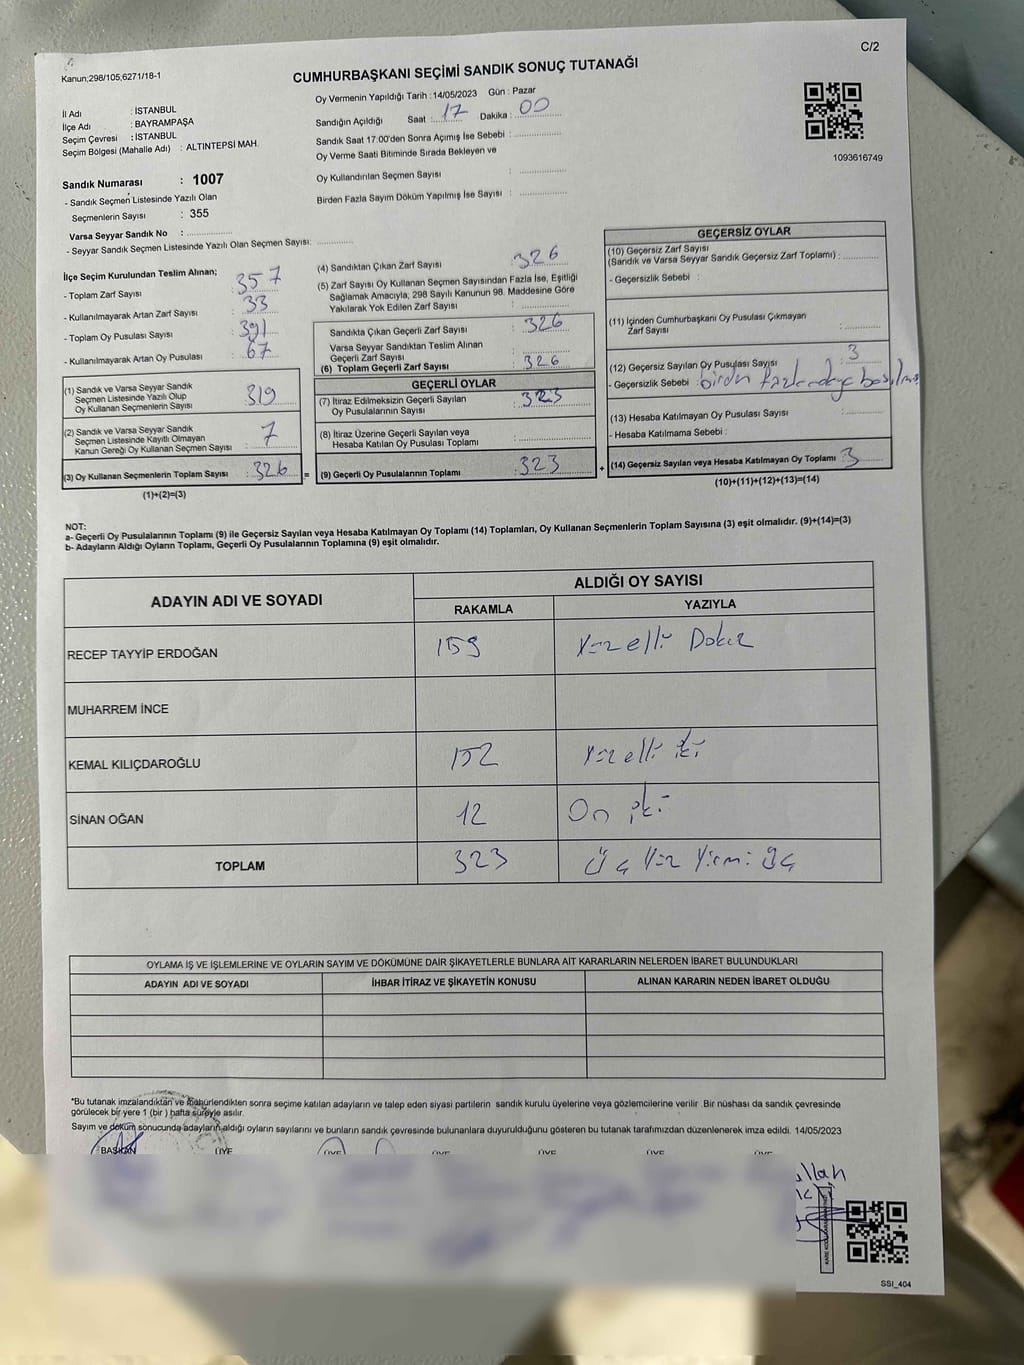 C/2
Kanun;298/105,6271/18-1
CUMHURBAŞKANI SEÇİMİ SANDIK SONUÇ TUTANAĞI
İl Adı : İSTANBUL
İlçe Adı : BAYRAMPAŞA
Seçim Çevresi : İSTANBUL
Seçim Bölgesi (Mahalle Adı) : ALTINTEPSİ MAH.
Sandık Numarası : 1007
- Sandık Seçmen Listesinde Yazılı Olan
Seçmenlerin Sayısı : 355
Varsa Seyyar Sandık No :
- Seyyar Sandık Seçmen Listesinde Yazılı Olan Seçmen Sayısı:
Oy Vermenin Yapıldığı Tarih : 14/05/2023 Gün : Pazar
Sandığın Açıldığı Saat : 17 Dakika : 00
Sandık Saat 17.00'den Sonra Açımış İse Sebebi :
Oy Verme Saati Bitiminde Sırada Bekleyen ve
Oy Kullandırılan Seçmen Sayısı :
Birden Fazla Sayım Döküm Yapılmış İse Sayısı :
1093616749
İlçe Seçim Kurulundan Teslim Alınan;
- Toplam Zarf Sayısı : 357
- Kullanılmayarak Artan Zarf Sayısı : 33
- Toplam Oy Pusulası Sayısı : 391
- Kullanılmayarak Artan Oy Pusulası : 67
(1) Sandık ve Varsa Seyyar Sandık
Seçmen Listesinde Yazılı Olup
Oy Kullanan Seçmenlerin Sayısı : 319
(2) Sandık ve Varsa Seyyar Sandık
Seçmen Listesinde Kayıtlı Olmayan
Kanun Gereği Oy Kullanan Seçmen Sayısı : 7
(3) Oy Kullanan Seçmenlerin Toplam Sayısı : 326 =
(1)+(2)=(3)
(4) Sandıktan Çıkan Zarf Sayısı : 326
(5) Zarf Sayısı Oy Kullanan Seçmen Sayısından Fazla İse, Eşitliği
Sağlamak Amacıyla, 298 Sayılı Kanunun 98. Maddesine Göre
Yakılarak Yok Edilen Zarf Sayısı :
Sandıkta Çıkan Geçerli Zarf Sayısı : 326
Varsa Seyyar Sandıktan Teslim Alınan
Geçerli Zarf Sayısı :
(6) Toplam Geçerli Zarf Sayısı : 326
GEÇERLİ OYLAR
(7) İtiraz Edilmeksizin Geçerli Sayılan
Oy Pusulalarının Sayısı : 323
(8) İtiraz Üzerine Geçerli Sayılan veya
Hesaba Katılan Oy Pusulası Toplamı :
(9) Geçerli Oy Pusulalarının Toplamı : 323 +
GEÇERSİZ OYLAR
(10) Geçersiz Zarf Sayısı
(Sandık ve Varsa Seyyar Sandık Geçersiz Zarf Toplamı) :
- Geçersizlik Sebebi :
(11) İçinden Cumhurbaşkanı Oy Pusulası Çıkmayan
Zarf Sayısı :
(12) Geçersiz Sayılan Oy Pusulası Sayısı : 3
- Geçersizlik Sebebi : birden fazla
(13) Hesaba Katılmayan Oy Pusulası Sayısı :
- Hesaba Katılmama Sebebi :
(14) Geçersiz Sayılan veya Hesaba Katılmayan Oy Toplamı : 3
(10)+(11)+(12)+(13)=(14)
NOT:
a- Geçerli Oy Pusulalarının Toplamı (9) ile Geçersiz Sayılan veya Hesaba Katılmayan Oy Toplamı (14) Toplamları, Oy Kullanan Seçmenlerin Toplam Sayısına (3) eşit olmalıdır. (9)+(14)=(3)
b- Adayların Aldığı Oyların Toplamı, Geçerli Oy Pusulalarının Toplamına (9) eşit olmalıdır.
ADAYIN ADI VE SOYADI
ALDIĞI OY SAYISI
RAKAMLA YAZIYLA
RECEP TAYYİP ERDOĞAN 159 Yüz elli Dokuz
MUHARREM İNCE
KEMAL KILIÇDAROĞLU 152 Yüz elli iki
SİNAN OĞAN 12 On iki
TOPLAM 323 Üç Yüz Yirmi Üç
OYLAMA İŞ VE İŞLEMLERİNE VE OYLARIN SAYIM VE DÖKÜMÜNE DAİR ŞİKAYETLERLE BUNLARA AİT KARARLARIN NELERDEN İBARET BULUNDUKLARI
ADAYIN ADI VE SOYADI İHBAR İTİRAZ VE ŞİKAYETİN KONUSU ALINAN KARARIN NEDEN İBARET OLDUĞU
*Bu tutanak imzalandıktan ve mühürlendikten sonra seçime katılan adayların ve talep eden siyasi partilerin sandık kurulu üyelerine veya gözlemcilerine verilir .Bir nüshası da sandık çevresinde
görülecek bir yere 1 (bir ) hafta süreyle asılır.
Sayım ve döküm sonucunda adayların aldığı oyların sayılarını ve bunların sandık çevresinde bulunanlara duyurulduğunu gösteren bu tutanak tarafımızdan düzenlenerek imza edildi. 14/05/2023
BAŞKAN ÜYE ÜYE ÜYE ÜYE ÜYE ÜYE
SSİ_404